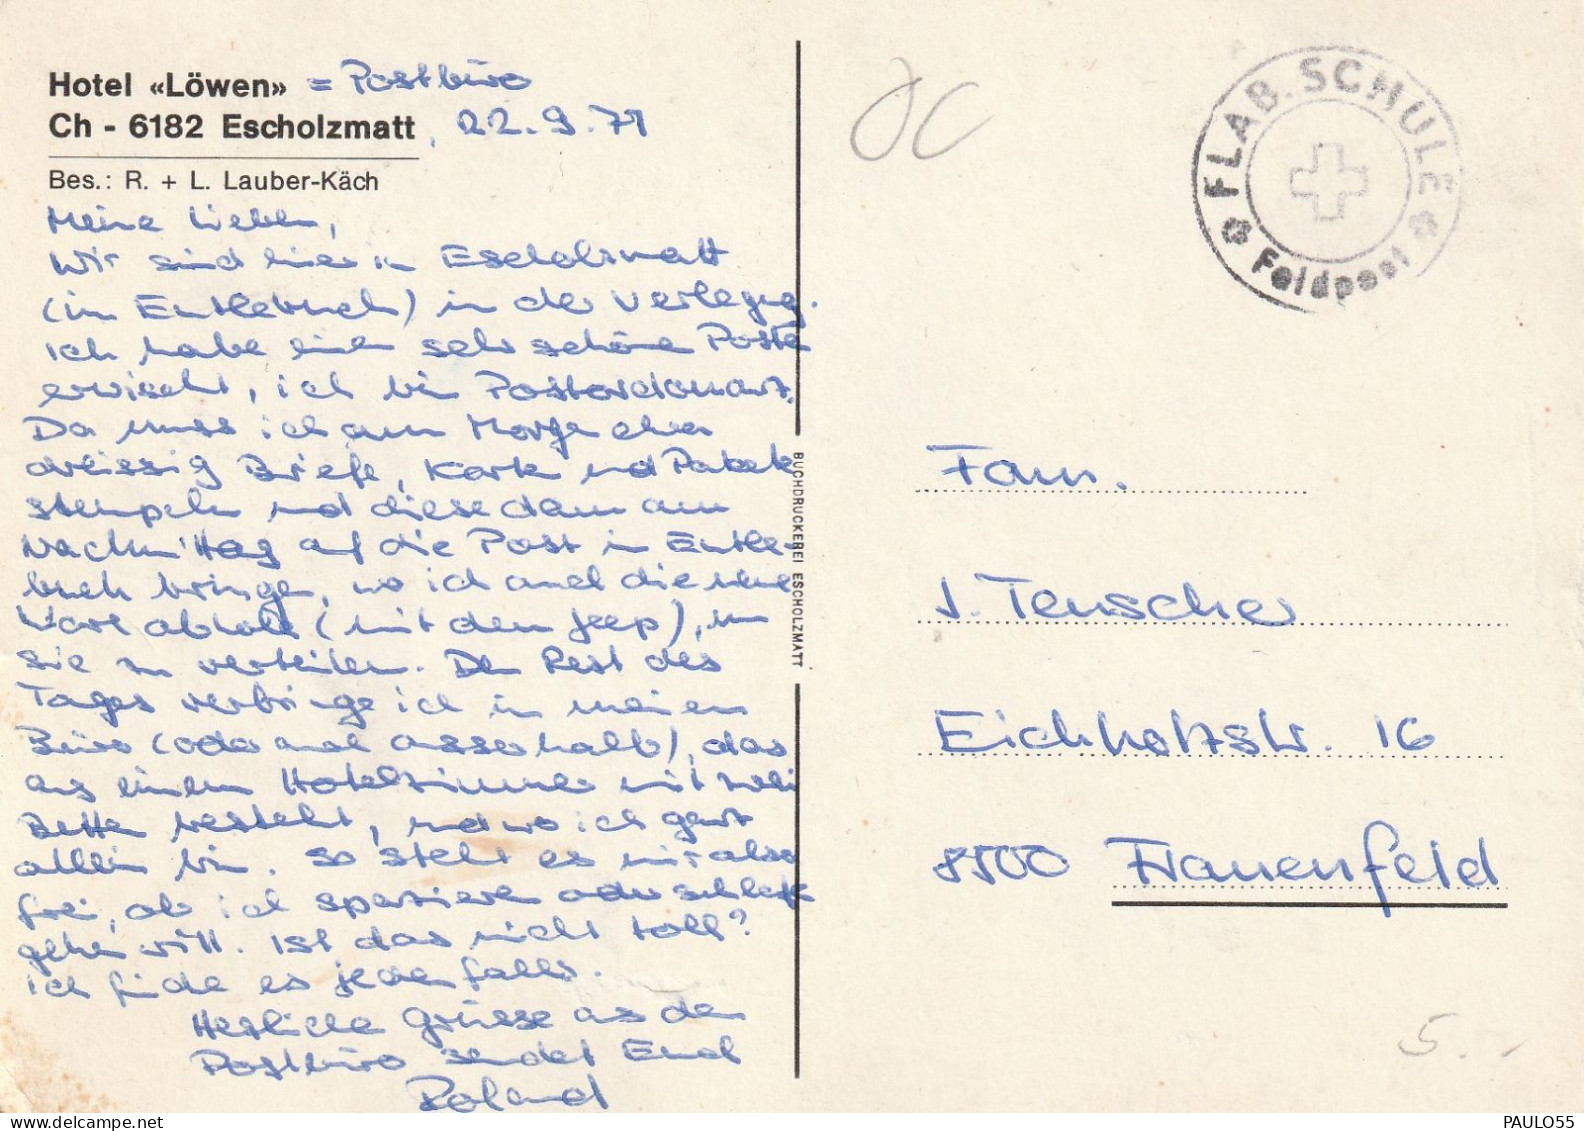 Hotel «Löwen» = Postbüro
Ch - 6182 Escholzmatt, 22.9.71
Bes.: R. + L. Lauber-Käch
Meine Lieben,
Wir sind hier in Escholzmatt
(im Entlebuch) in der Verlegug.
Ich habe einen sehr schöne Posten
erwischt, ich bin Postordonnanz.
Da muss ich am Morge etwa
dreissig Briefe, Karten und Pakete
stempeln und diese dann am
Nachmittag auf die Post in Entle-
buch bringe, wo ich auch die neue
Ware abhole (mit dem Jeep), um
sie zu verteilen. Den Rest des
Tages verbringe ich in meinem
Büro (oder auch ausserhalb), das
aus einem Hotelzimmer mit zwei
Betten besteht, und wo ich ganz
allein bin. So steht es mir also
frei, ob ich spazieren oder schlafe
gehen will. Ist das nicht toll?
Ich finde es jedenfalls.
Herzliche Grüsse aus dem
Postbüro sendet Euch
Roland
BUCHDRUCKEREI ESCHOLZMATT
FLAB. SCHULE
Feldpost
Fam.
J. Teuscher
Eichholzstr. 16
8500 Frauenfeld
5.-
PAULO55